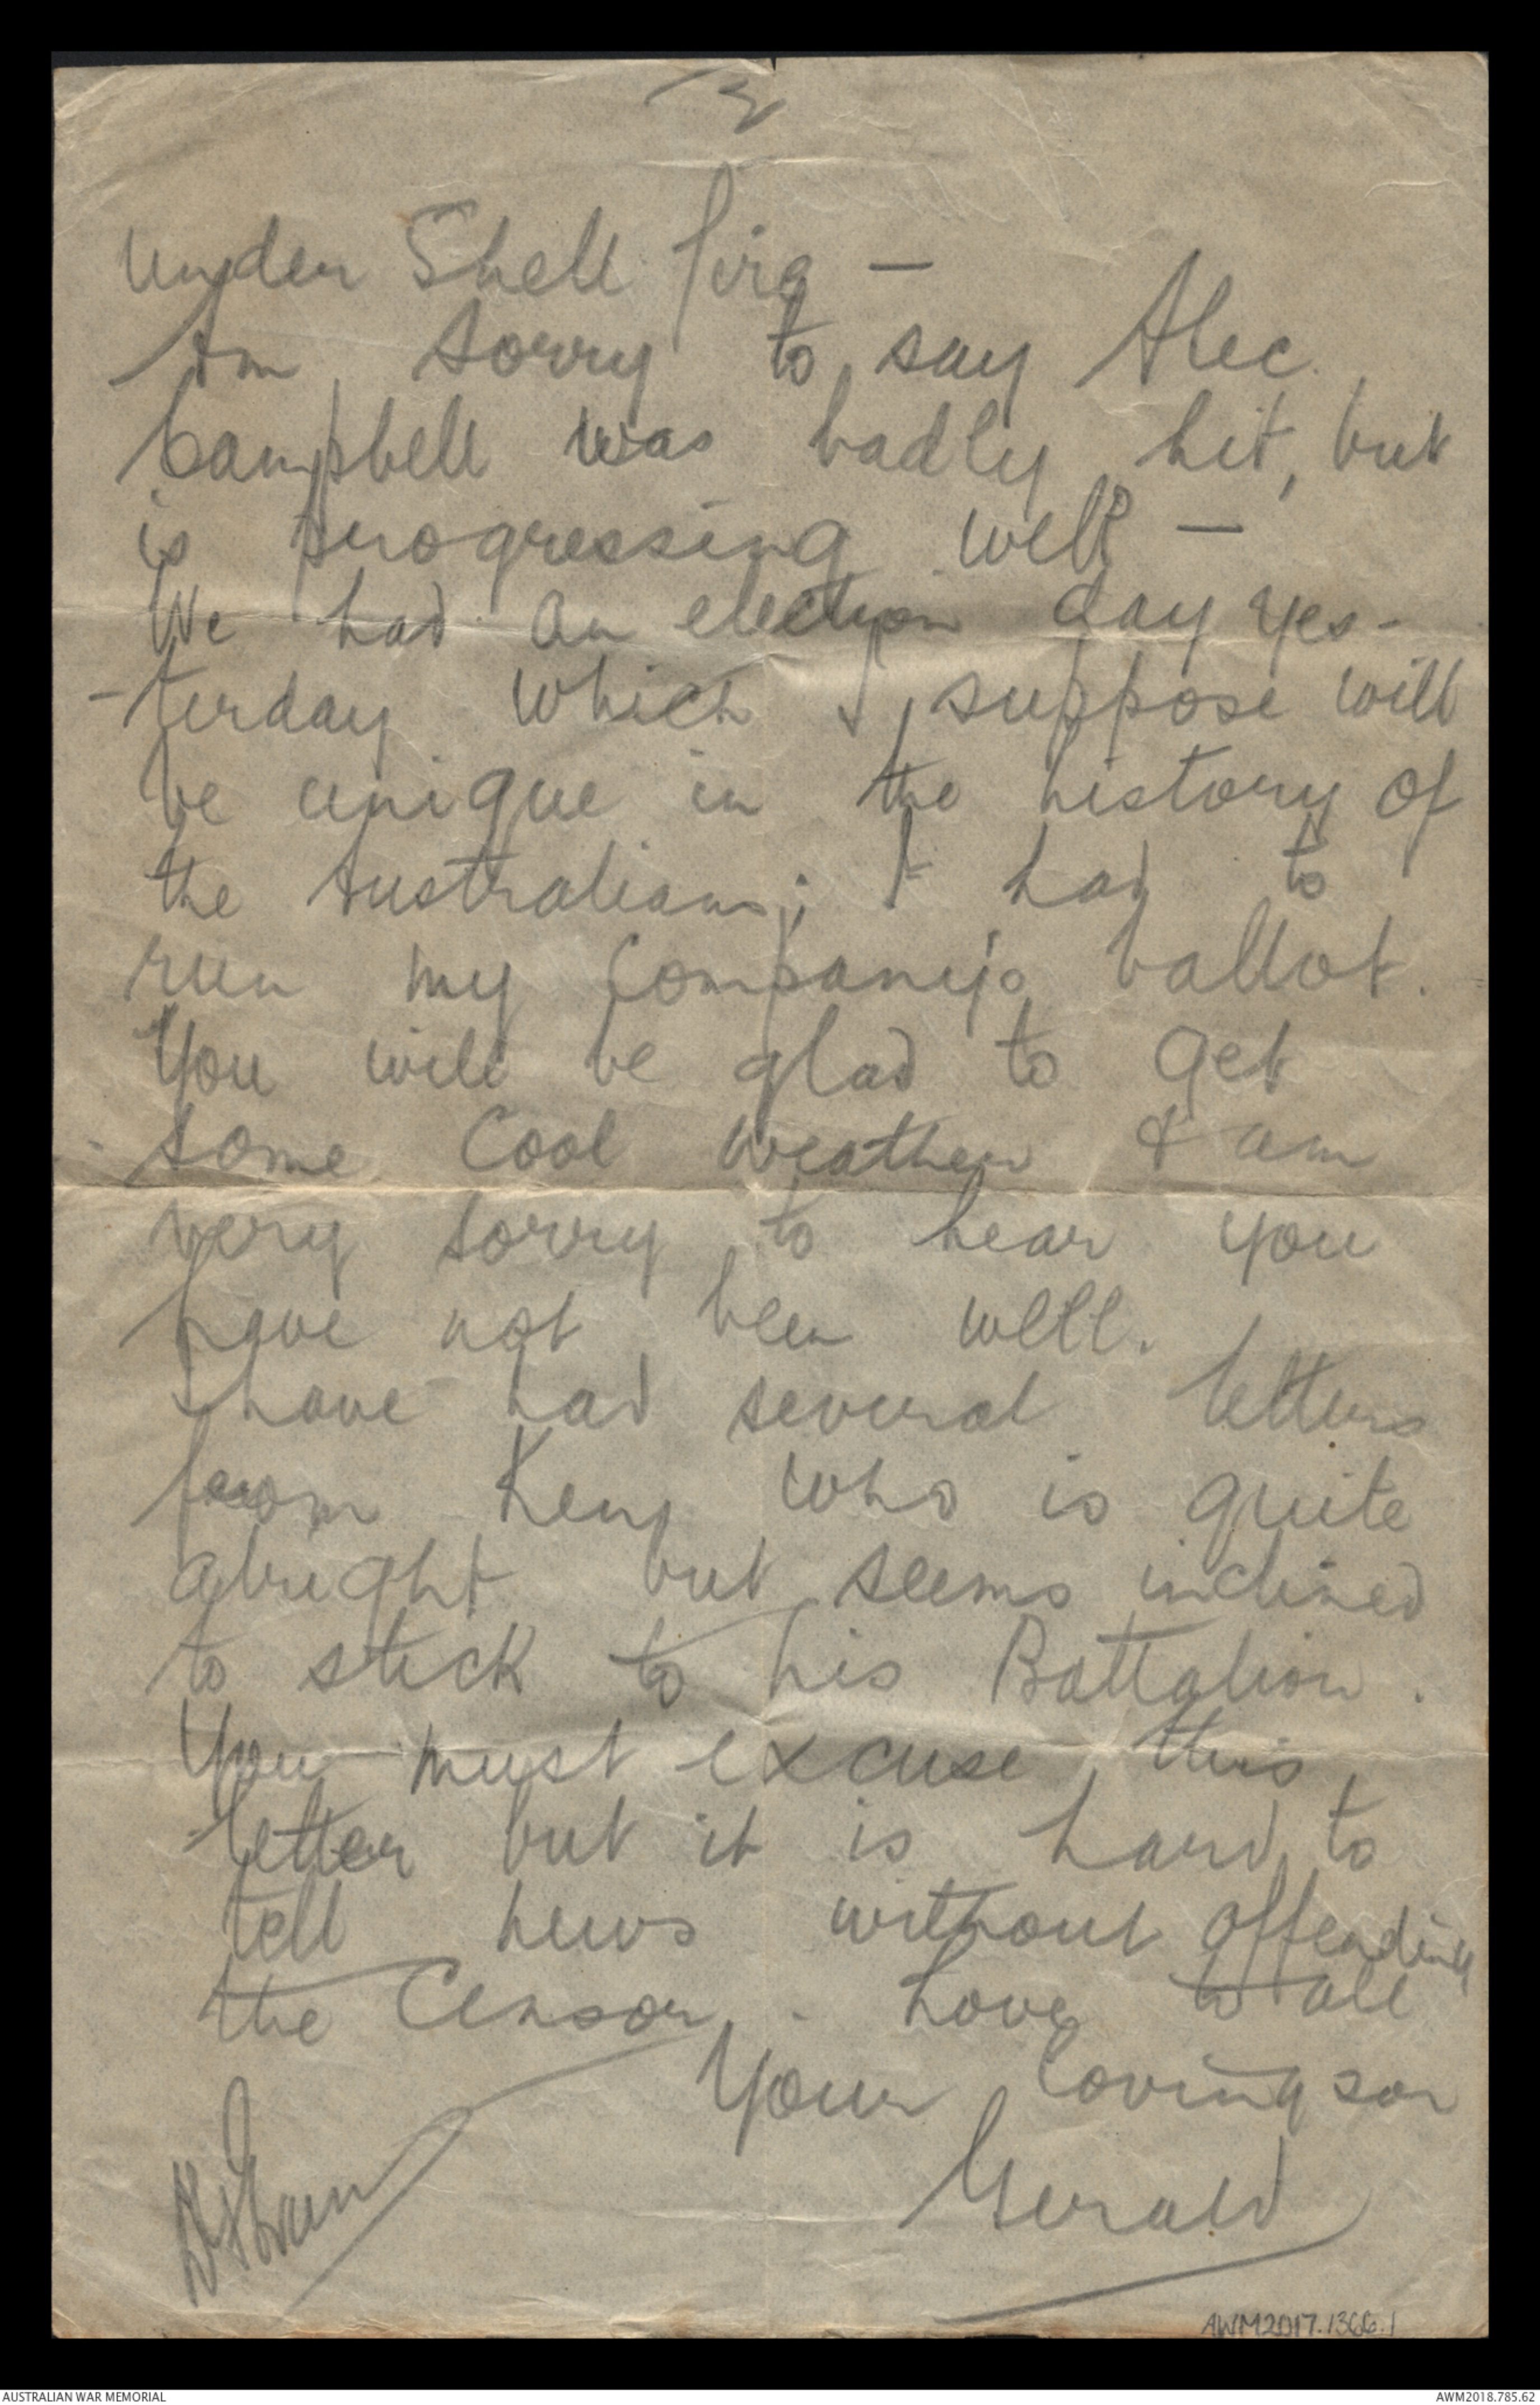 3
under Shell fire —
Am sorry to say Alec
Campbell was badly hit, but
is progressing well —
We had an election day yes-
-terday which I suppose will
be unique in the history of
the Australians; I had to
run my company's ballot.
You will be glad to get
some cool weather & am
very sorry to hear you
have not been well.
I have had several letters
from Keny who is quite
alright but seems inclined
to stick to his Battalion.
You must excuse this
letter but it is hard to
tell news without offending
the Censor. Love to all
Your loving son
Gerald
AWM2017.1366.1
AUSTRALIAN WAR MEMORIAL
AWM2018.785.62